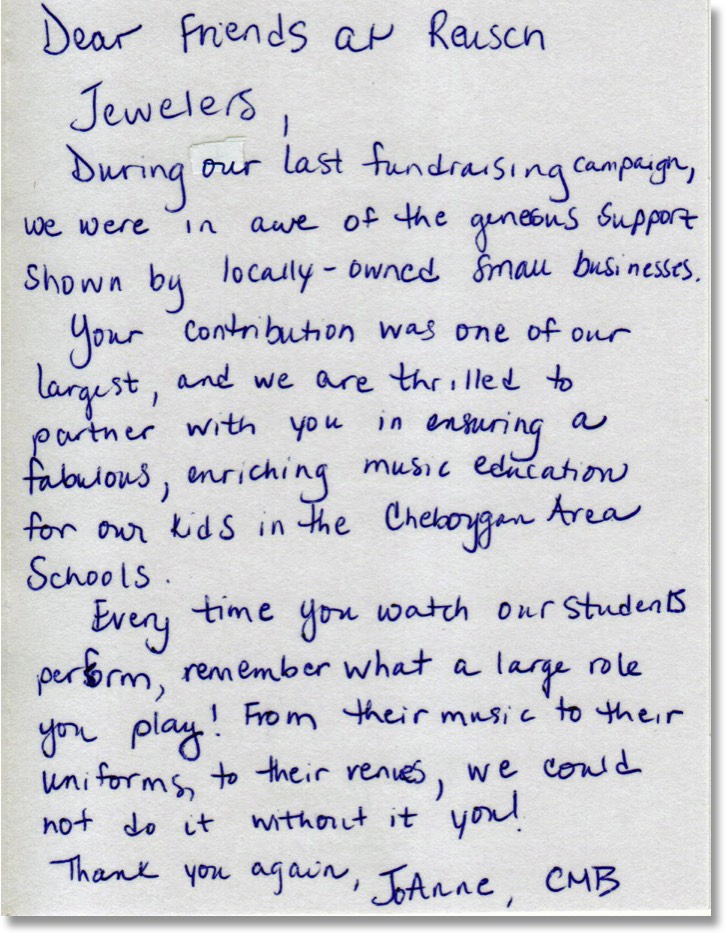 Dear Friends at Reusch
Jewelers,
During our last fundraising campaign,
we were in awe of the geneous support
shown by locally-owned small businesses.
Your contribution was one of our
largest, and we are thrilled to
partner with you in ensuring a
fabulous, enriching music education
for our kids in the Cheboygan Area
Schools.
Every time you watch our students
perform, remember what a large role
you play! From their music to their
uniforms, to their venues, we could
not do it without it you!
Thank you again, JoAnne, CMB